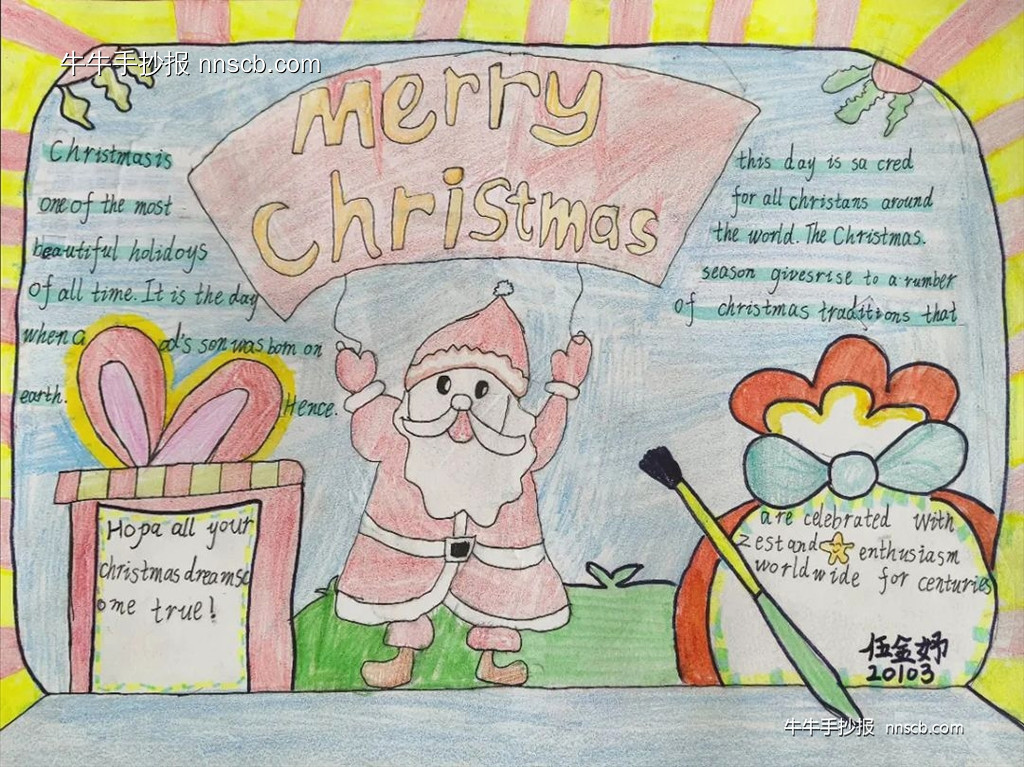 牛牛手抄报 nnscb.com
Merry
Christmas
Christmas is
one of the most
beautiful holidoys
of all time. It is the day
when a od's son was born on
earth. Hence.
this day is sa cred
for all christans around
the world. The Christmas.
season givesrise to a rumber
of christmas traditions that
are celebrated with
zest and enthusiasm
worldwide for centuries
Hopa all your
christmas dreamsc
ome true!
伍金妤
20103
牛牛手抄报 nnscb.com